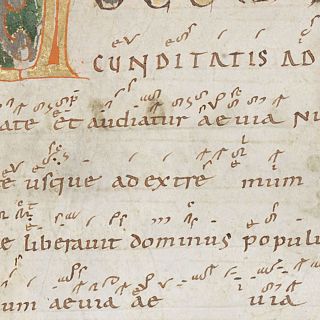 CUNDITATIS AD
ate et audiatur aeuia Nu
te usque ad extre mum
e liberauit dominus populu
um aeuia ae uia